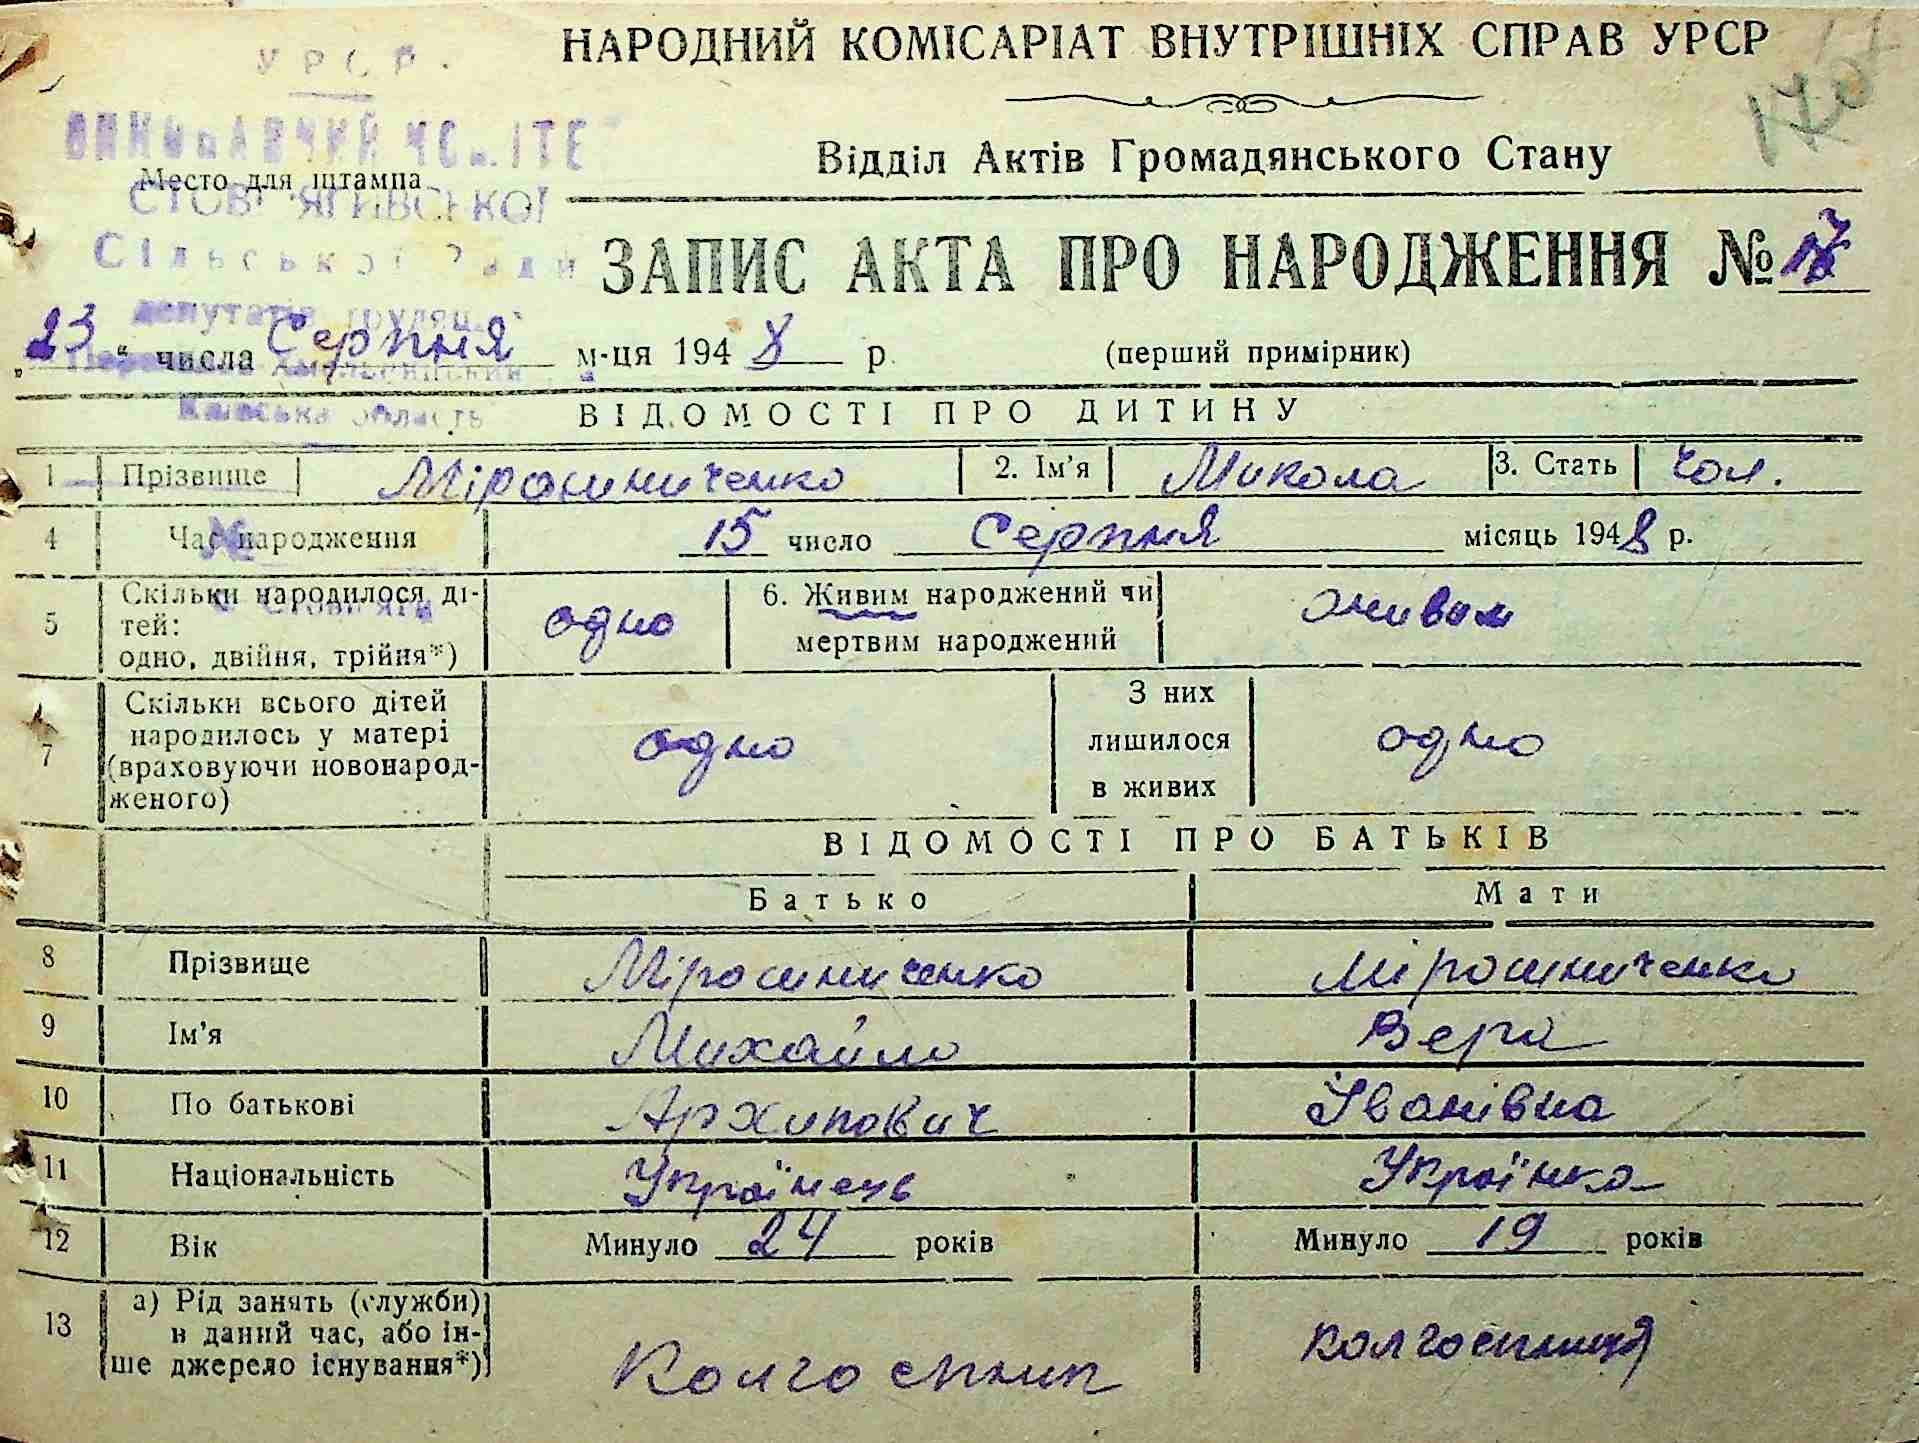 НАРОДНИЙ КОМІСАРІАТ ВНУТРІШНІХ СПРАВ УРСР
УРСР.
170
ВИКОНАВЧИЙ КОМІТЕ
Відділ Актів Громадянського Стану
Место для штампа
СТОВП'ЯГІВСЬКОЇ
Сільської Ради
ЗАПИС АКТА ПРО НАРОДЖЕННЯ № 17
депутатів трудящ.
„23“ числа Серпня м-ця 1948 р. (перший примірник)
Переяслав Хмельницький
Київська область
ВІДОМОСТІ ПРО ДИТИНУ
1 Прізвище Мірошниченко 2. Ім'я Микола 3. Стать Чол.
4 Час народження 15 число Серпня місяць 1948 р.
5 Скільки народилося ді-
тей:
одно, двійня, трійня*) одно 6. Живим народжений чи
мертвим народжений живим
7 Скільки всього дітей
народилось у матері
(враховуючи новонарод-
женого) одно З них
лишилося
в живих одно
ВІДОМОСТІ ПРО БАТЬКІВ
Батько Мати
8 Прізвище Мірошниченко Мірошниченко
9 Ім'я Михайло Вера
10 По батькові Архипович Іванівна
11 Національність Українець Українка
12 Вік Минуло 24 років Минуло 19 років
13 а) Рід занять (служби)
в даний час, або ін-
ше джерело існування*) Колгоспник колгоспниця